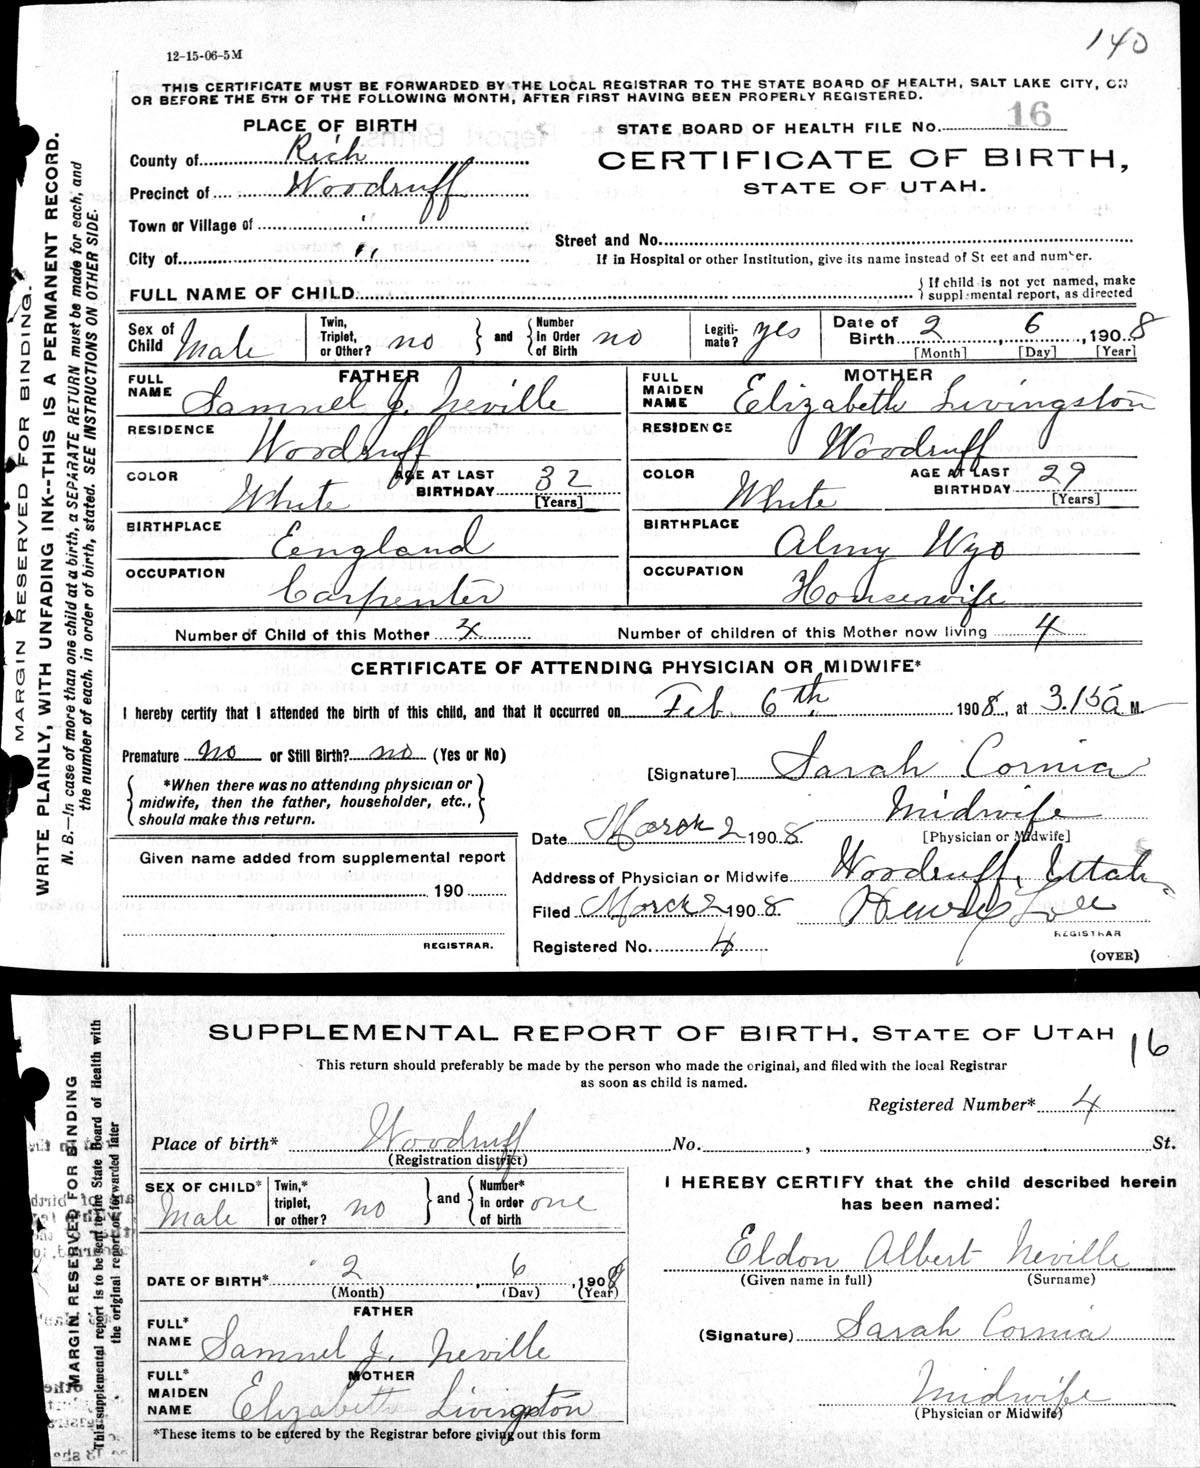 140
12-15-06-5M
THIS CERTIFICATE MUST BE FORWARDED BY THE LOCAL REGISTRAR TO THE STATE BOARD OF HEALTH, SALT LAKE CITY, ON
OR BEFORE THE 5TH OF THE FOLLOWING MONTH, AFTER FIRST HAVING BEEN PROPERLY REGISTERED.
PLACE OF BIRTH
STATE BOARD OF HEALTH FILE No. 16
County of Rich
CERTIFICATE OF BIRTH,
Precinct of Woodruff
STATE OF UTAH.
Town or Village of "
Street and No.
City of "
If in Hospital or other Institution, give its name instead of St eet and number.
FULL NAME OF CHILD
{ If child is not yet named, make
supplemental report, as directed
Sex of Child Male
Twin, Triplet, or Other? no } and { Number in Order of Birth no
Legiti-mate? yes
Date of Birth 2 , 6 , 1908
[Month] [Day] [Year]
FATHER
FULL NAME Samuel J. Neville
RESIDENCE Woodruff
COLOR White
AGE AT LAST BIRTHDAY 32
[Years]
BIRTHPLACE Eengland
OCCUPATION Carpenter
MOTHER
FULL MAIDEN NAME Elizabeth Livingston
RESIDENCE Woodruff
COLOR White
AGE AT LAST BIRTHDAY 29
[Years]
BIRTHPLACE Almy Wyo
OCCUPATION Housewife
Number of Child of this Mother 4
Number of children of this Mother now living 4
CERTIFICATE OF ATTENDING PHYSICIAN OR MIDWIFE*
I hereby certify that I attended the birth of this child, and that it occurred on Feb. 6th, 1908, at 3.15 a M.
Premature no or Still Birth? no (Yes or No)
[Signature] Sarah Cornia
{ *When there was no attending physician or
midwife, then the father, householder, etc.,
should make this return. }
Midwife
[Physician or Midwife]
Date March 2 1908
Given name added from supplemental report
190
REGISTRAR.
Address of Physician or Midwife Woodruff, Uttah
Filed March 2 1908 Henry Lee
REGISTRAR
Registered No. 4
(OVER)
MARGIN RESERVED FOR BINDING.
WRITE PLAINLY, WITH UNFADING INK--THIS IS A PERMANENT RECORD.
N. B.—In case of more than one child at a birth, a SEPARATE RETURN must be made for each, and
the number of each, in order of birth, stated. SEE INSTRUCTIONS ON OTHER SIDE.
SUPPLEMENTAL REPORT OF BIRTH, STATE OF UTAH
16
This return should preferably be made by the person who made the original, and filed with the local Registrar
as soon as child is named.
Registered Number* 4
Place of birth* Woodruff No. , St.
(Registration district)
SEX OF CHILD* Male
Twin,* triplet, or other? no } and { Number* in order of birth one
DATE OF BIRTH* 2 , 6 , 1908
(Month) (Day) (Year)
FATHER
FULL* NAME Samuel J. Neville
MOTHER
FULL* MAIDEN NAME Elizabeth Livingston
*These items to be entered by the Registrar before giving out this form
I HEREBY CERTIFY that the child described herein
has been named:
Eldon Albert Neville
(Given name in full) (Surname)
(Signature) Sarah Cornia
Midwife
(Physician or Midwife)
MARGIN RESERVED FOR BINDING
This supplemental report is to be sent to the State Board of Health with
the original report of forwarded later